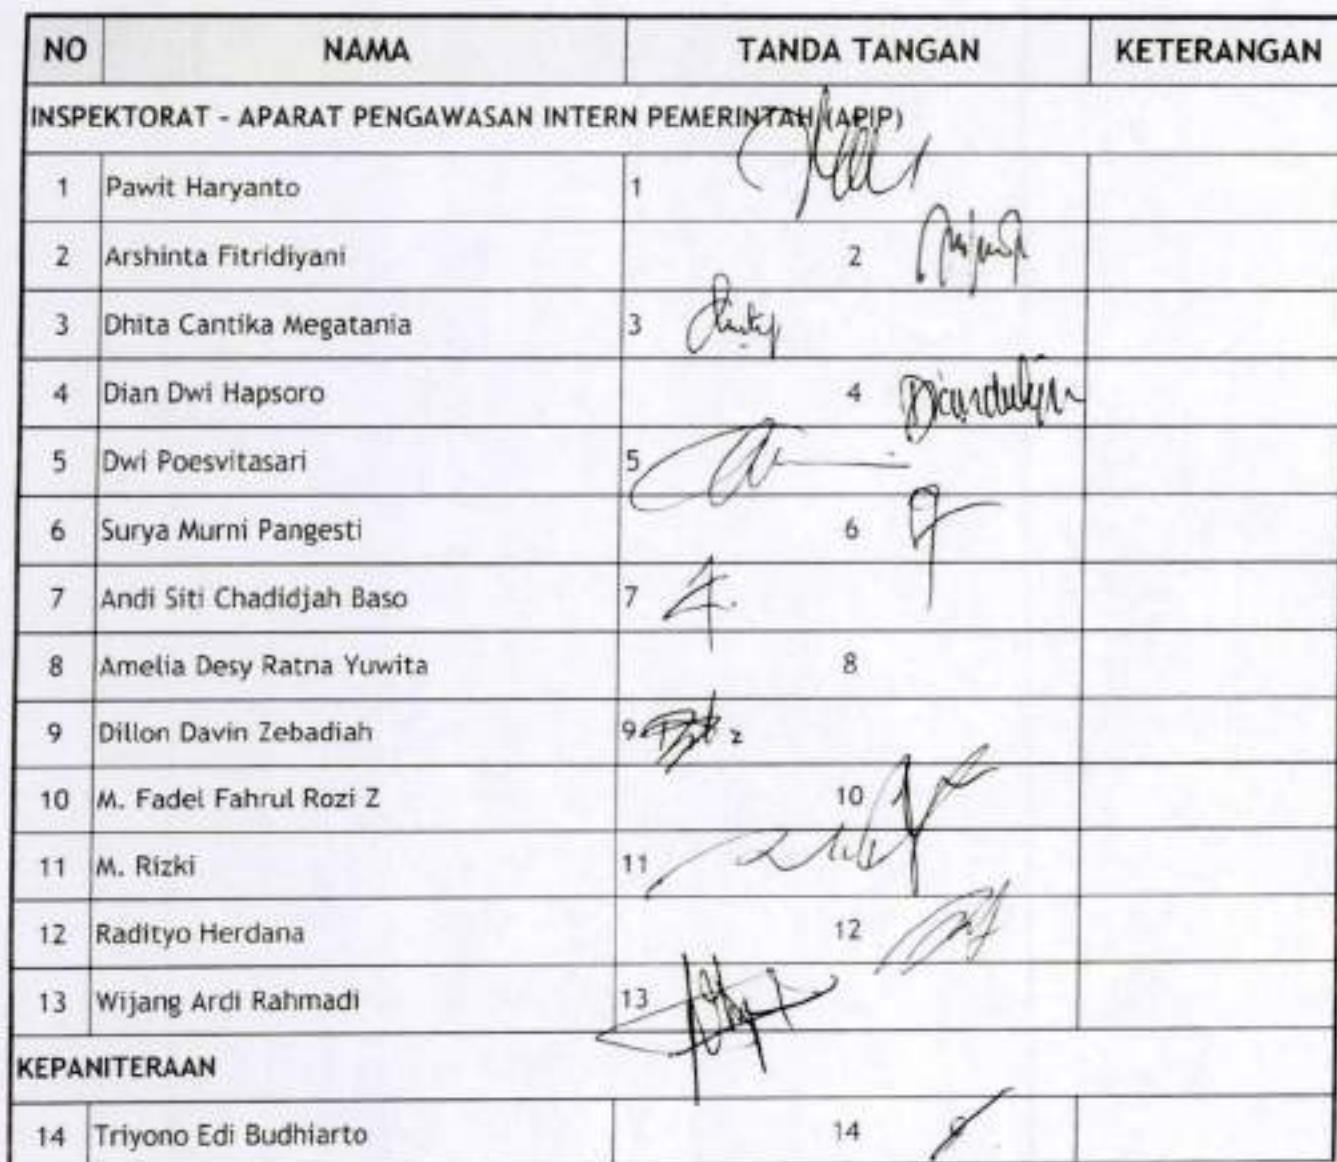 NO NAMA TANDA TANGAN KETERANGAN
INSPEKTORAT - APARAT PENGAWASAN INTERN PEMERINTAH (APIP)
1 Pawit Haryanto 1
2 Arshinta Fitridiyani 2
3 Dhita Cantika Megatania 3
4 Dian Dwi Hapsoro 4
5 Dwi Poesvitasari 5
6 Surya Murni Pangesti 6
7 Andi Siti Chadidjah Baso 7
8 Amelia Desy Ratna Yuwita 8
9 Dillon Davin Zebadiah 9
10 M. Fadel Fahrul Rozi Z 10
11 M. Rizki 11
12 Radityo Herdana 12
13 Wijang Ardi Rahmadi 13
KEPANITERAAN
14 Triyono Edi Budhiarto 14